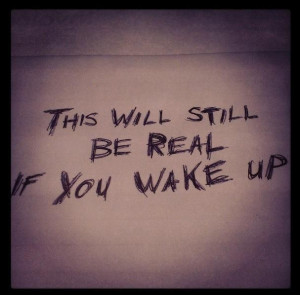 THIS WILL STILL
BE REAL
IF YOU WAKE UP